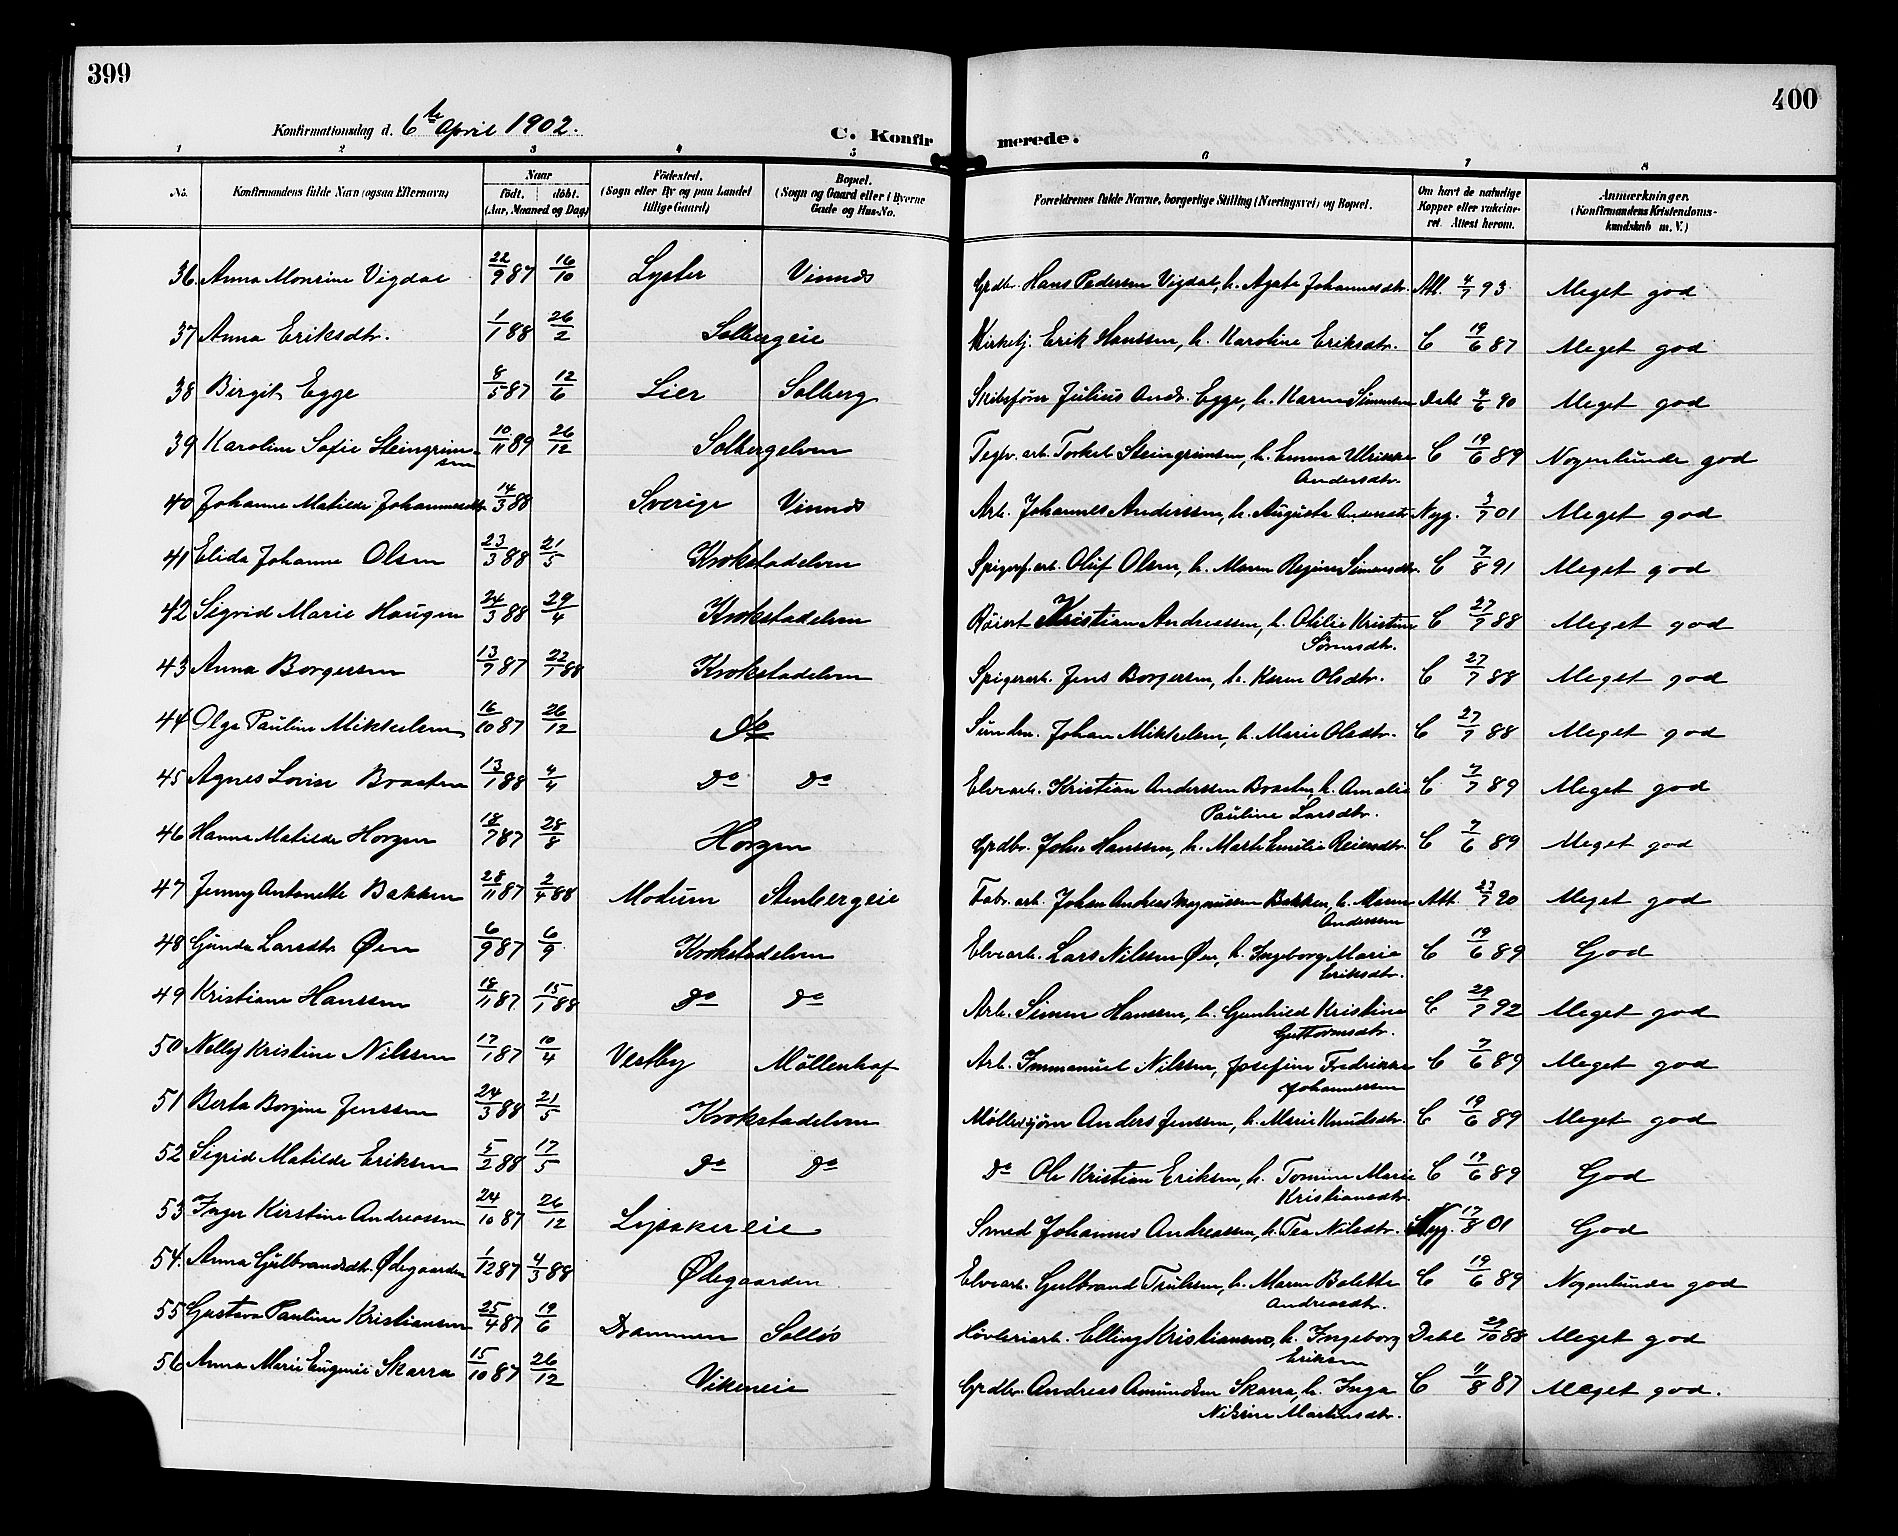 399
400
Konfirmationsdag d. 6te April 1902.
C. Konfirmerede.
1 2 3 4 5 6 7 8
No. Konfirmandens fulde Navn (ogsaa Efternavn) Naar født. døbt. (Aar, Maaned og Dag) Fødested. (Sogn eller By og paa Landet tillige Gaard) Bopæl. (Sogn og Gaard eller i Byerne Gade og Hus-No. Forældrenes fulde Navne, borgerlige Stilling (Næringsvei) og Bopæl. Om havt de naturlige Kopper eller vakcineret. Attest herom. Anmærkninger. (Konfirmandens Kristendomskundskab m. V.)
36. Anna Monsine Vigdal 22/9 87 16/10 Lyster Vinnes Grdbr. Hans Pedersen Vigdal, h. Agate Johannesdtr. Att. 4/7 93 Meget god
37 Anna Eriksdtr. 1/1 88 26/2 Solbergeie Kirketj. Erik Hanssen, h. Karoline Eriksdtr. C 19/6 87 Meget god
38 Birgit Egge 8/5 87 12/6 Lier Solberg Skibsfører Julius Andr. Egge, h. Karen Simensen Dahl 4/6 90 Meget god
39 Karoline Sofie Steingrimsen 10/11 89 26/12 Solbergelven Teglv. arb. Torkel Steingrimsen, h. Emma Ulrikke Andersdtr. C 19/6 89 Nogenlunde god
40 Johanne Matilde Johannesdtr. 14/3 88 Sverige Vinnes Arb. Johannes Anderssen, h. Augusta Andersdtr. Nyg. 3/7 01 Meget god
41 Elida Johanne Olsen 23/3 88 21/5 Krokstadelven Spigerf. arb. Oluf Olsen, h. Maren Regine Simensdtr. C 7/8 91 Meget god
42 Sigrid Marie Haugen 24/3 88 29/4 Krokstadelven Kristian Andreassen, h. Otilie Kristine Sørensdtr. C 27/7 88 Meget god
43 Anna Borgersen 13/9 87 22/1 88 Krokstadelven Spigerarb. Jens Borgersen, h. Karen Olsdtr. C 27/7 88 Meget god
44 Olga Pauline Mikkelsen 16/10 87 26/12 do Johan Mikkelsen, h. Marie Olsdtr. C 27/7 88 Meget god
45 Agnes Lovise Braaten 13/1 88 4/4 Do Do Elvearb. Kristian Anderssen Braaten, h. Amalie Pauline Larsdtr. C 7/7 89 Meget god
46 Hanna Matilde Horgen 18/7 87 28/8 Horgen Grdbr. Johan Hanssen, h. Marte Emilie Reiersdtr. C 7/6 89 Meget god
47 Jenny Antonette Bakken 28/11 87 2/4 88 Modum Stenbergeie Fabr. arb. Johan Andreas Magnussen Bakken, h. Maren Anderssen Att. 23/7 90 Meget god
48 Gunda Larsdtr. Øen 6/9 87 6/9 Krokstadelven Elvearb. Lars Nilssen Øen, h. Ingeborg Marie Eriksdtr. C 19/6 89 God
49 Kristiane Hanssen 18/11 87 15/1 88 Do Do Arb. Simen Hanssen, h. Gunhild Kristine Guttormsdtr. C 29/7 92 Meget god
50 Nelly Kristine Nilssen 17/1 87 10/4 Vestby Møllenhof Arb. Immanuel Nilssen, Josefine Fredrikke Johannessen C 7/6 89 Meget god
51 Berta Borgine Jenssen 24/3 88 21/5 Krokstadelven Anders Jenssen, h. Marie Knudsdtr. C 19/6 89 Meget god
52 Sigrid Matilde Eriksen 5/2 88 17/5 Do Do Do Ole Kristian Eriksen, h. Tomine Marie Kristiansdtr. C 19/6 89 God
53 Inger Kirstine Andreassen 24/10 87 26/12 Lysakereie Smed Johannes Andreassen, h. Tea Nilsdtr. Nyg. 17/8 01 God
54. Anna Gulbrandsdtr. Ødegaarden 1/12 87 4/3 88 Ødegaarden Elvearb. Gulbrand Trulssen, h. Maren Bolette Andreasdtr. C 19/6 89 Nogenlunde god
55 Gustava Pauline Kristiansen 25/4 87 19/6 Drammen Solløs Høvleriarb. Elling Kristiansen, h. Ingeborg Eriksen Dahl 29/10 88 Meget god
56 Anna Marie Eugenie Skarra 15/10 87 26/12 Vikeneie Grdbr. Andreas Amundsen Skarra, h. Inga Nilsine Martinsdtr. C 11/8 87 Meget god.